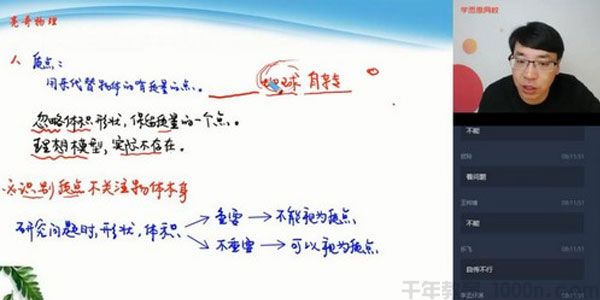 亮奇物理
学而思网校
1、质点:
用来代替物体的有质量的点。
地球 自转
忽略体积形状,保留质量的一个点。
理想模型,实际不存在。
识别质点 不关注物体本身
研究问题时,形状,体积
重要 → 不能视为质点
不重要 → 可以视为质点
不能
08:11:51
看问题
08:11:51
不能
08:11:51
自传不行
千年教育 1000n.com